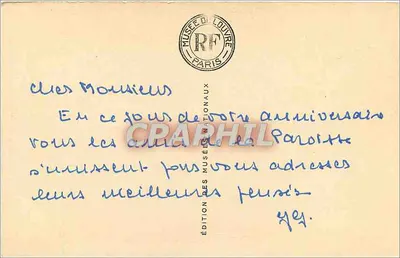 MUSÉE DU LOUVRE
RF
PARIS
Cher Monsieur
En ce jour de votre anniversaire
tous les amis de la Paroisse
s'unissent pour vous adresser
leurs meilleures pensées
ÉDITION DES MUSÉES NATIONAUX
CPARHIL